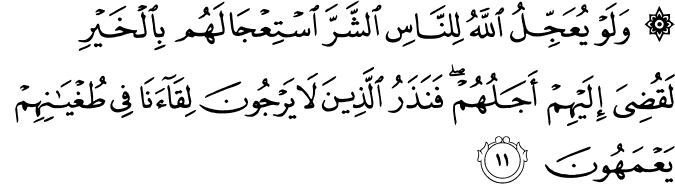 ۞ وَلَوْ يُعَجِّلُ ٱللَّهُ لِلنَّاسِ ٱلشَّرَّ ٱسْتِعْجَالَهُم بِٱلْخَيْرِ
لَقُضِىَ إِلَيْهِمْ أَجَلُهُمْ ۖ فَنَذَرُ ٱلَّذِينَ لَا يَرْجُونَ لِقَآءَنَا فِى طُغْيَـٰنِهِمْ
يَعْمَهُونَ ١١